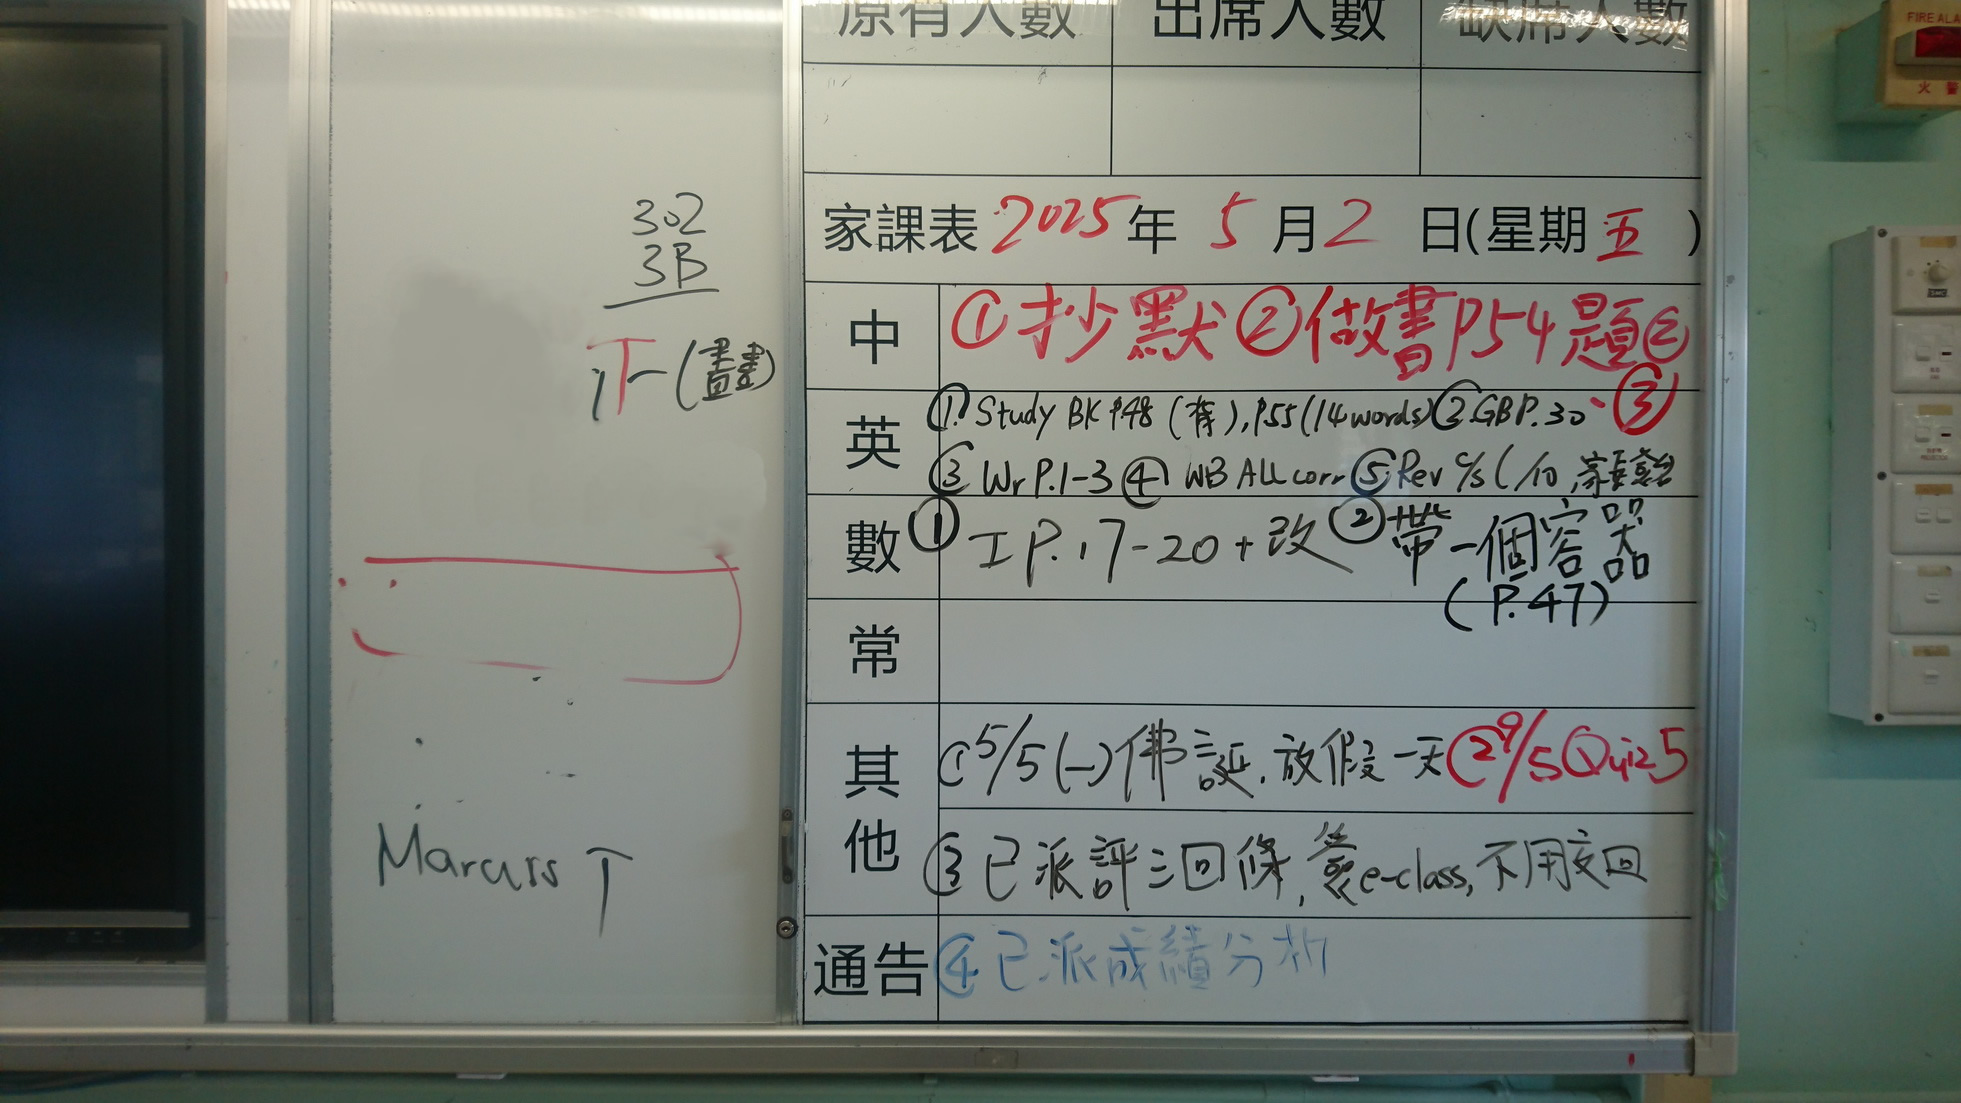 原有人數 出席人數 缺席人數
302
3B
(書畫)
Marcuss T
家課表 2025 年 5 月 2 日(星期 五 )
中 ①抄默②做書P54題②、③
英 ① Study BK P48 (背), P55 (14 words) ② GB P.30
③ Wr P.1-3 ④ WB ALL corr ⑤ Rev c/s ( /10,
數 ① 工 P.17-20 + 改 ② 帶一個容器
(P.47)
常
其他 ① 5/5 (一) 佛誕, 放假一天 ② 9/5 Quiz 5
③ 已派評三回條, 簽e-class, 不用交回
通告 ④ 已派成績分析
FIRE ALA
火 警